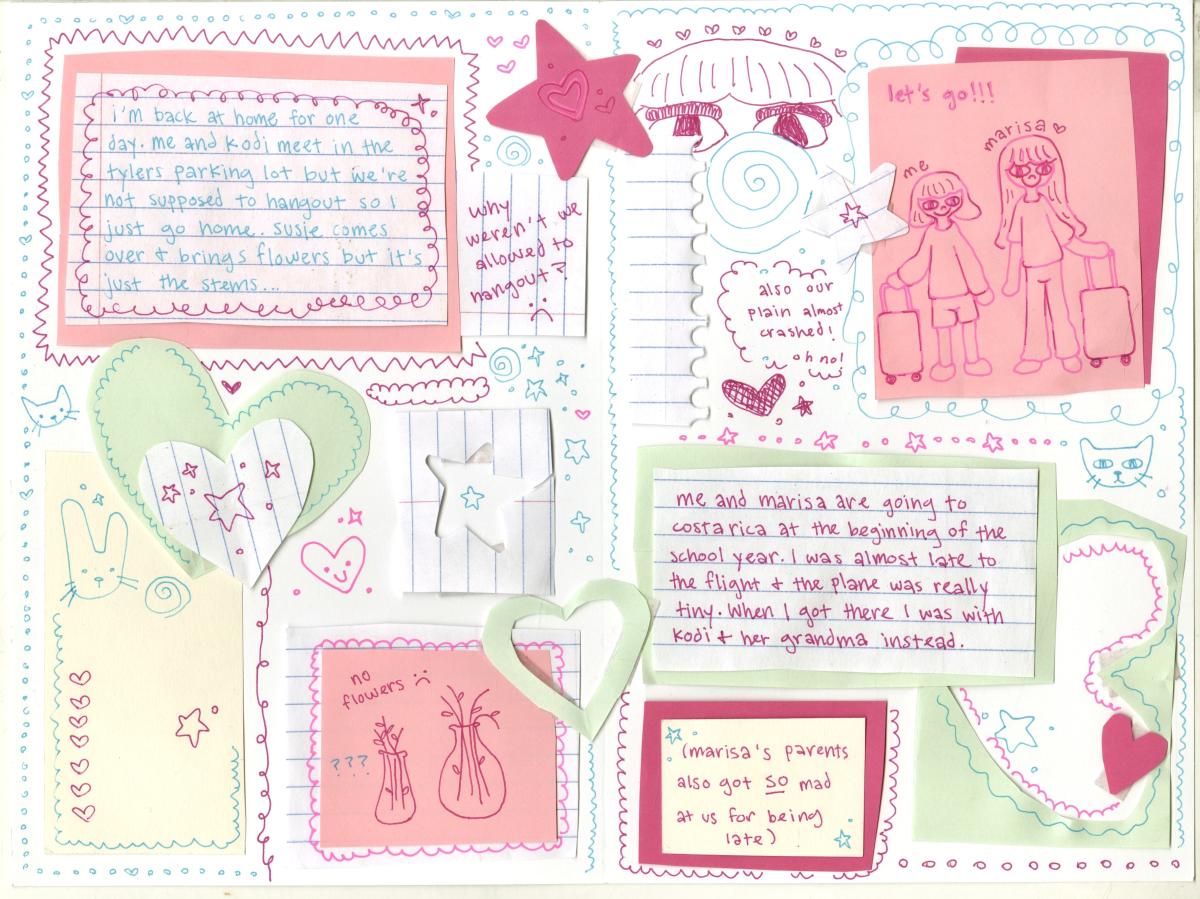 i'm back at home for one
day. me and kodi meet in the
tylers parking lot but we're
not supposed to hangout so I
just go home. susie comes
over & brings flowers but it's
just the stems...
why
weren't we
allowed to
hangout?
no
flowers
???
let's go!!!
me
marisa
also our
plain almost
crashed!
oh no!
me and marisa are going to
costa rica at the beginning of the
school year. I was almost late to
the flight & the plane was really
tiny. When I got there I was with
kodi & her grandma instead.
(marisa's parents
also got SO mad
at us for being
late)